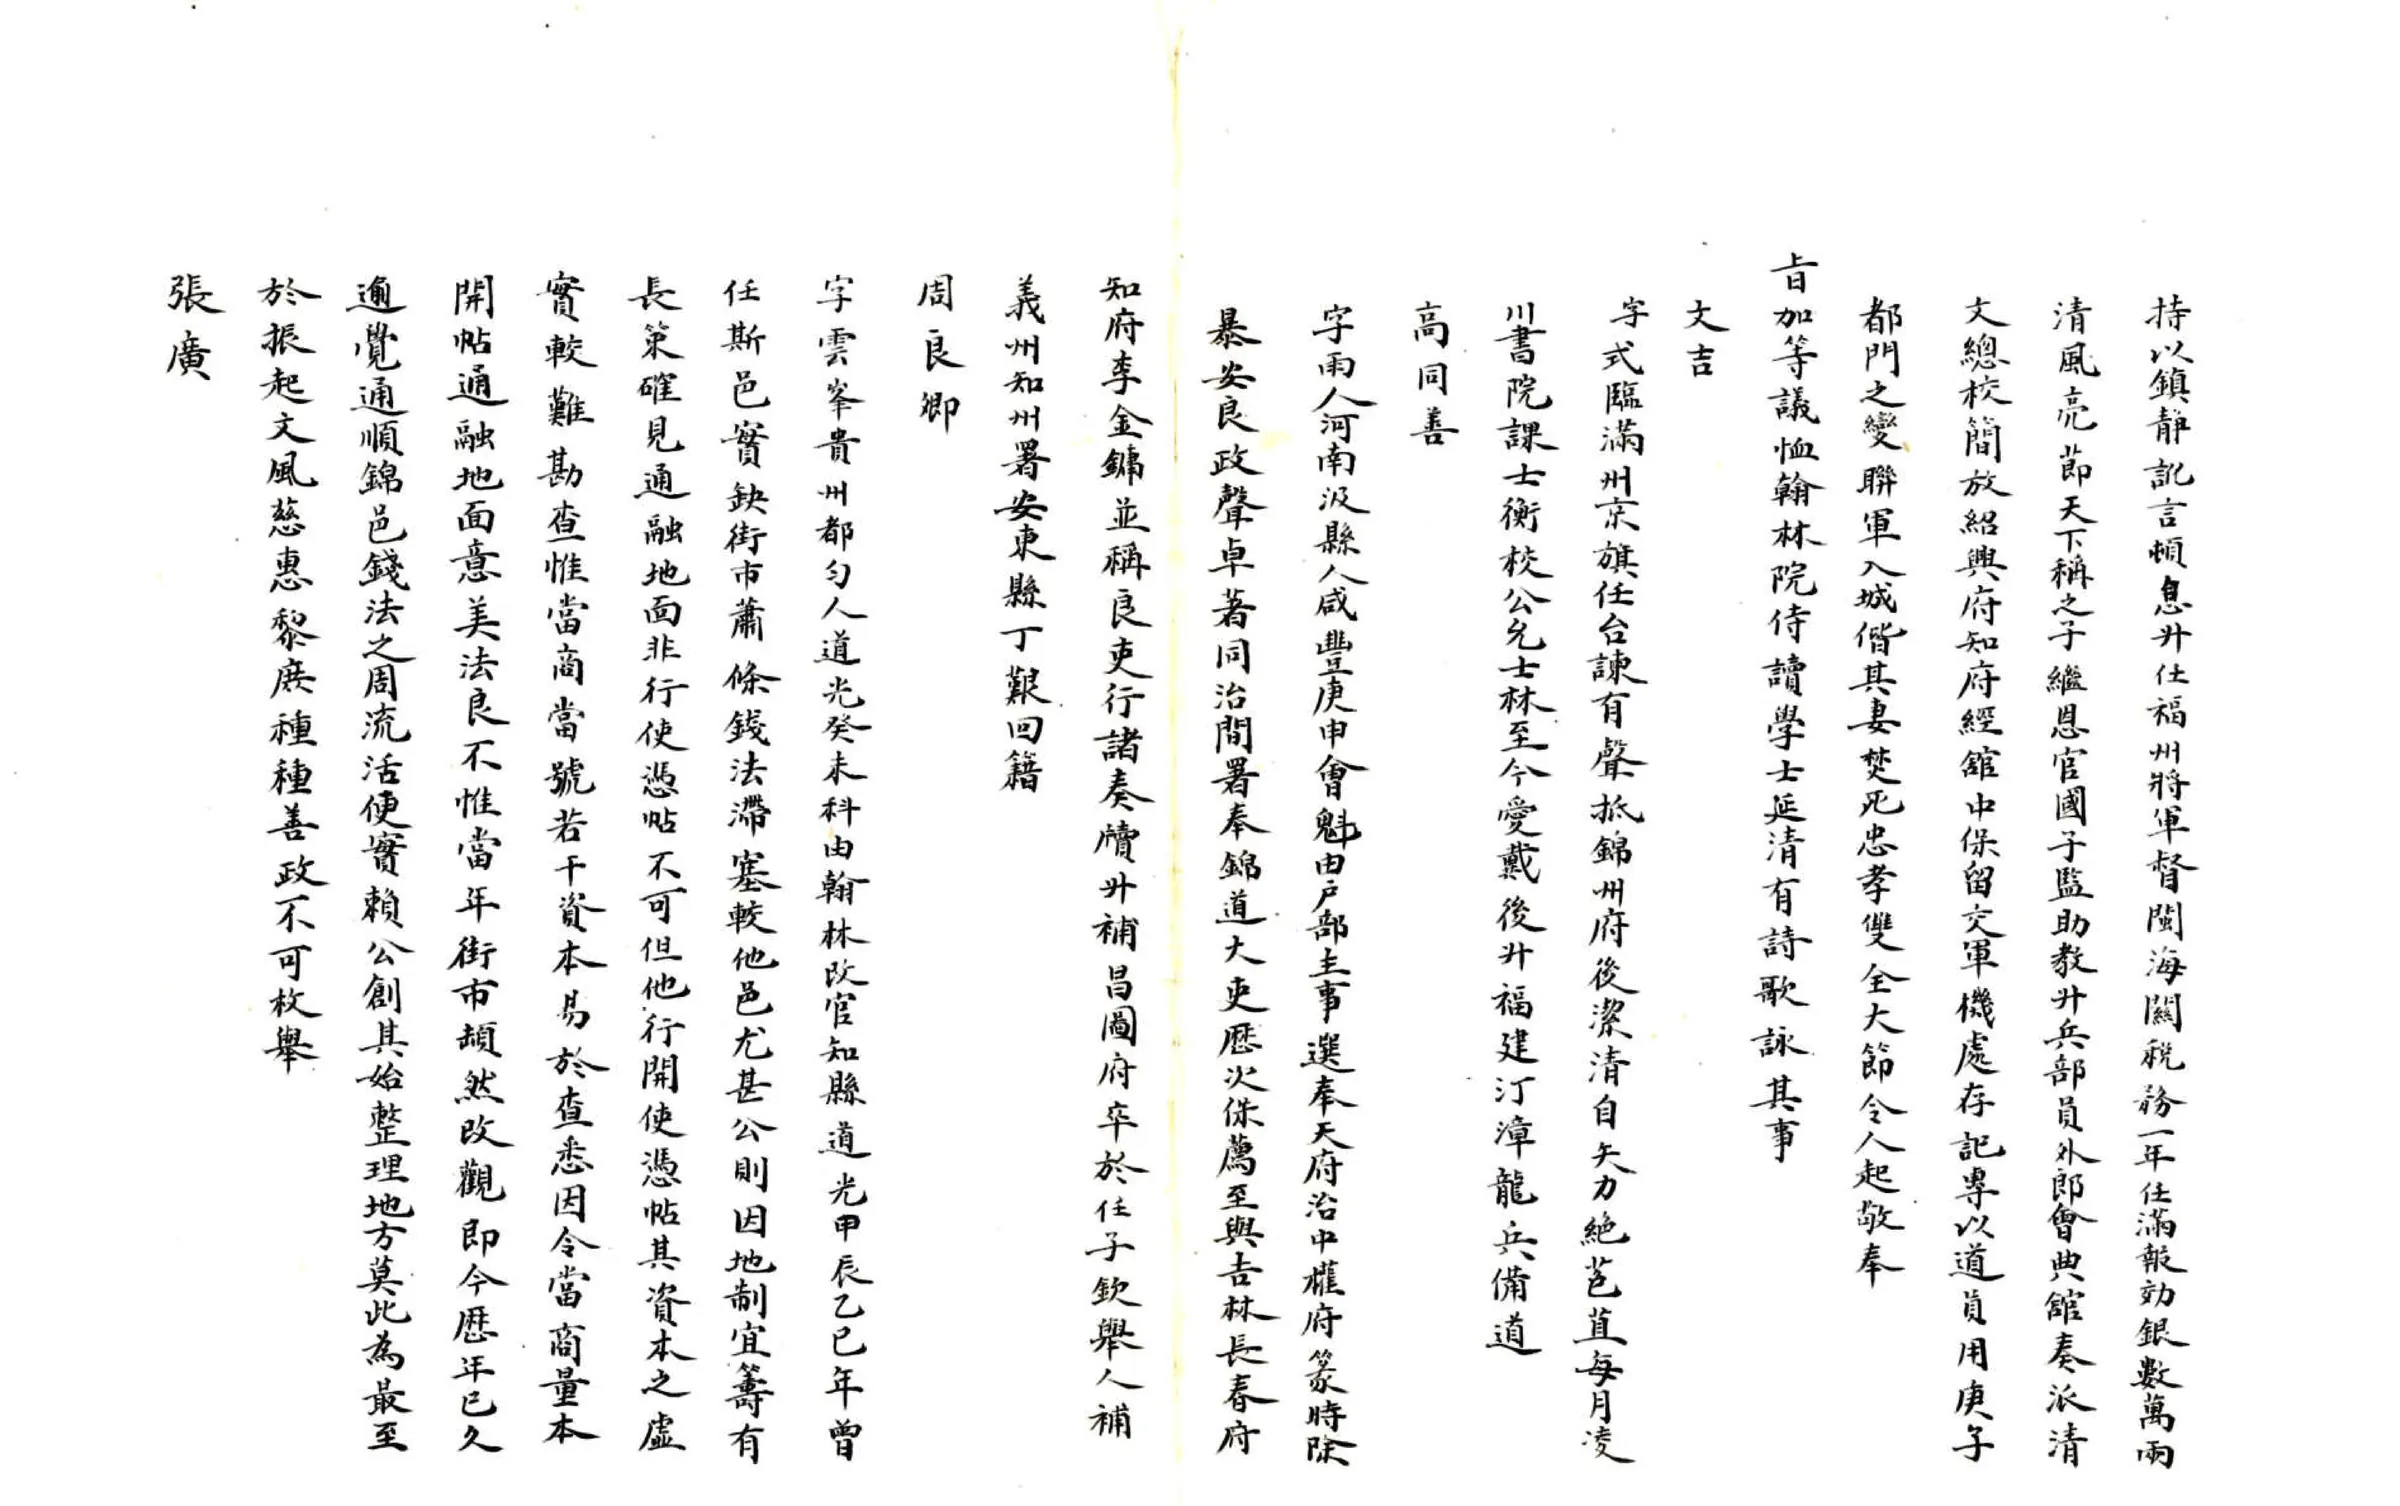 持以鎮靜訛言頓息升仕福州將軍督閩海關稅務一年任滿報効銀數萬兩
清風亮節天下稱之子繼恩官國子監助教升兵部員外郎會典館奏派清
文總校簡放紹興府知府經舘中保留交軍機處存記專以道員用庚子
都門之變聯軍入城偕其妻焚死忠孝雙全大節令人起敬奉
旨加等議恤翰林院侍讀學士延清有詩歌詠其事
文吉
字式臨滿州京旗任台諫有聲抵錦州府後潔清自矢力絶苞苴每月凌
川書院課士衡校公允士林至今愛戴後升福建汀漳龍兵備道
高同善
字雨人河南汲縣人咸豐庚申會魁由戶部主事選奉天府治中權府篆時除
暴安良政聲卓著同治間署奉錦道大吏歷次保薦至與吉林長春府
知府李金鏞並稱良吏行諸奏牘升補昌圖府卒於任子欽舉人補
義州知州署安東縣丁艱回籍
周良卿
字雲峯貴州都勻人道光癸未科由翰林改官知縣道光甲辰乙巳年曾
任斯邑實缺街市蕭條錢法滯塞較他邑尤甚公則因地制宜籌有
長策確見通融地面非行使憑帖不可但他行開使憑帖其資本之虛
實較難勘查惟當商當號若干資本易於查悉因令當商量本
開帖通融地面意美法良不惟當年街市頓然改觀即今歷年已久
逾覺通順錦邑錢法之周流活便實賴公創其始整理地方莫此為最至
於振起文風慈惠黎庶種種善政不可枚舉
張廣